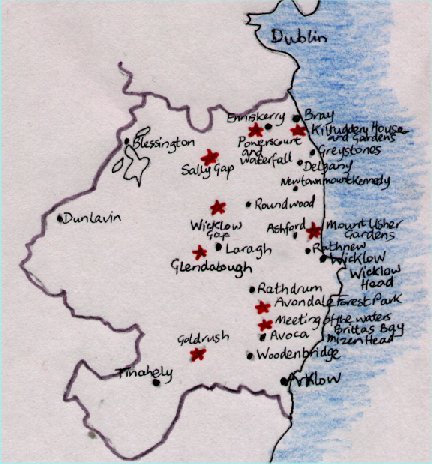 Dublin
Enniskerry
Bray
Powerscourt
and
waterfall
Kilruddery House
and Gardens
Blessington
Greystones
Sally Gap
Delgany
Newtownmountkennedy
Roundwood
Dunlavin
Wicklow
Gap
Ashford
Mount Usher
Gardens
Laragh
Rathnew
Wicklow
Glendalough
Wicklow
Head
Rathdrum
Avondale Forest Park
Meeting of the waters
Brittas Bay
Goldrush
Avoca
Mizen Head
Woodenbridge
Tinahely
Arklow